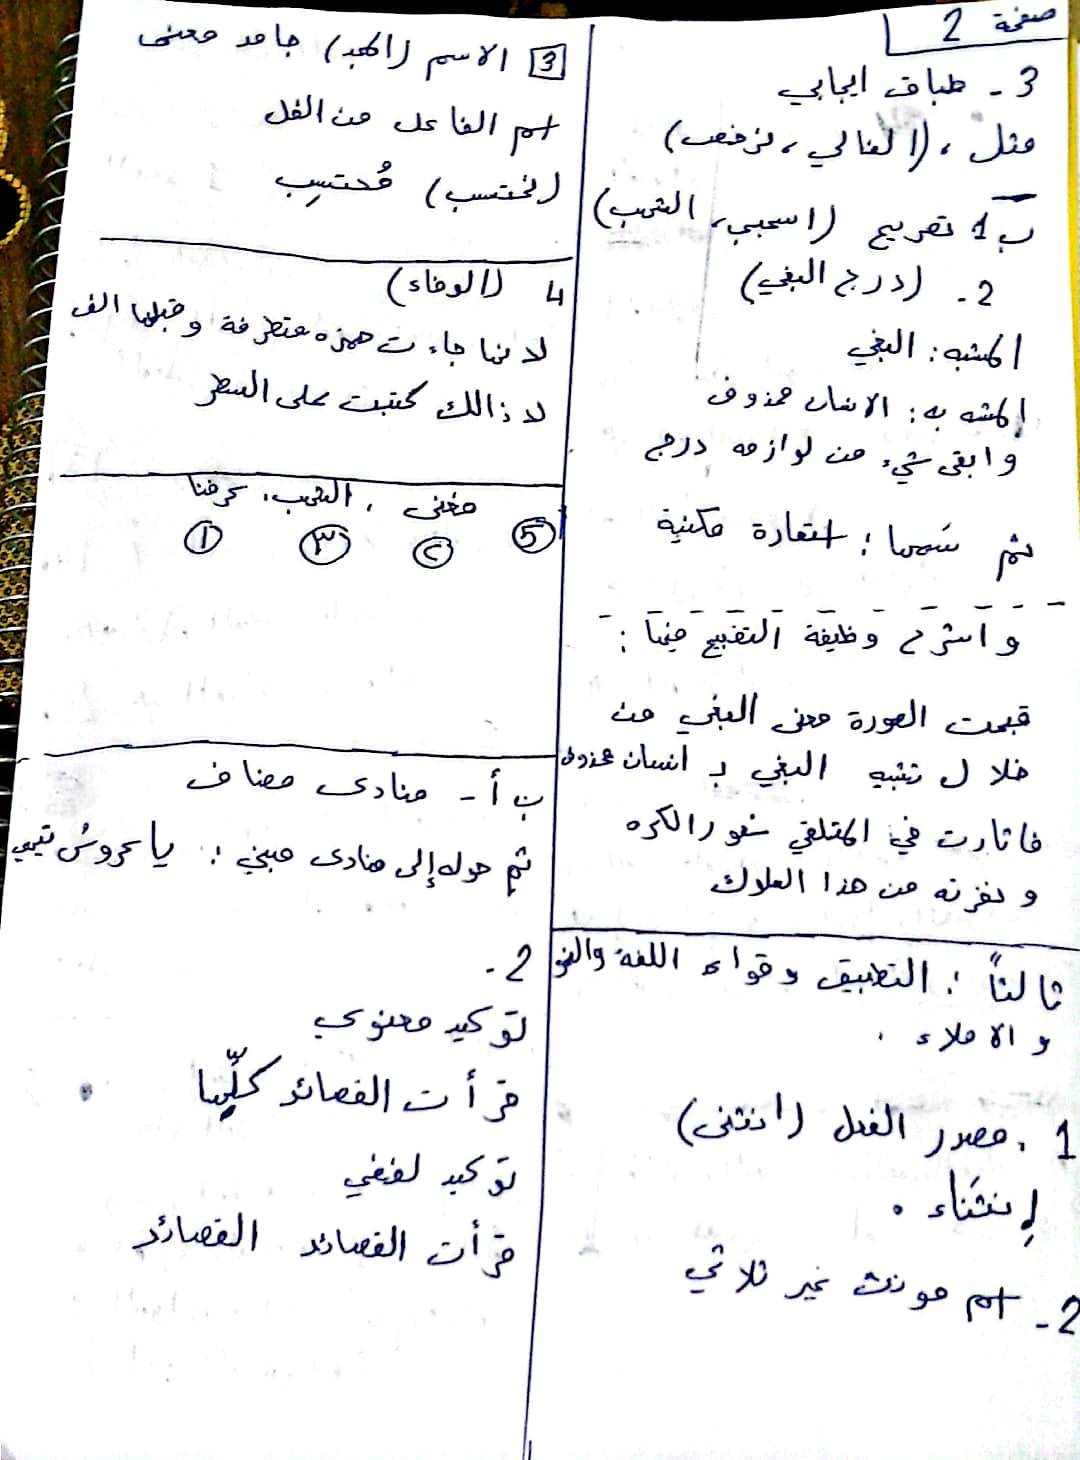 صفحة 2
3 - طباق ايجابي
مثل ، (الغالي ، ترخص)
ب 1 تصريح (اسحبي، الشهب)
2 - (درج البغي)
المشبه : البغي
المشبه به : الانسان محذوف
وابقى شيء من لوازمه درج
ثم سمها : استعارة مكنية
و اشرح وظيفة التقبيح فيها :
قبحت الصورة معنى البغي من
خلال تشبيه البغي بـ انسان محذوف
فاثارت في المتلقي شعور الكره
و نفرته من هذا السلوك
ثالثاً : التطبيق وقواعد اللغة والنحو
و الاملاء .
1 . مصدر الفعل (انثنى)
إنثناء .
2 - اسم مونث غير ثلاثي
3 الاسم (المجد) جامد معنى
اسم الفاعل من الفعل
(احتسب) مُحتسِب
4 (الوفاء)
لانها جاءت همزه متطرفة وقبلها الف
لاذالك كتبت على السطر
5 مغنى ، الشهب، عرفنا
٢ ٣ ١
ب أ - منادى مضاف
ثم حوله إلى منادى مبني : يا عروسُ تيهي
2 -
توكيد معنوي
قرأت القصائد كلِّها
توكيد لفظي
قرأت القصائد القصائد